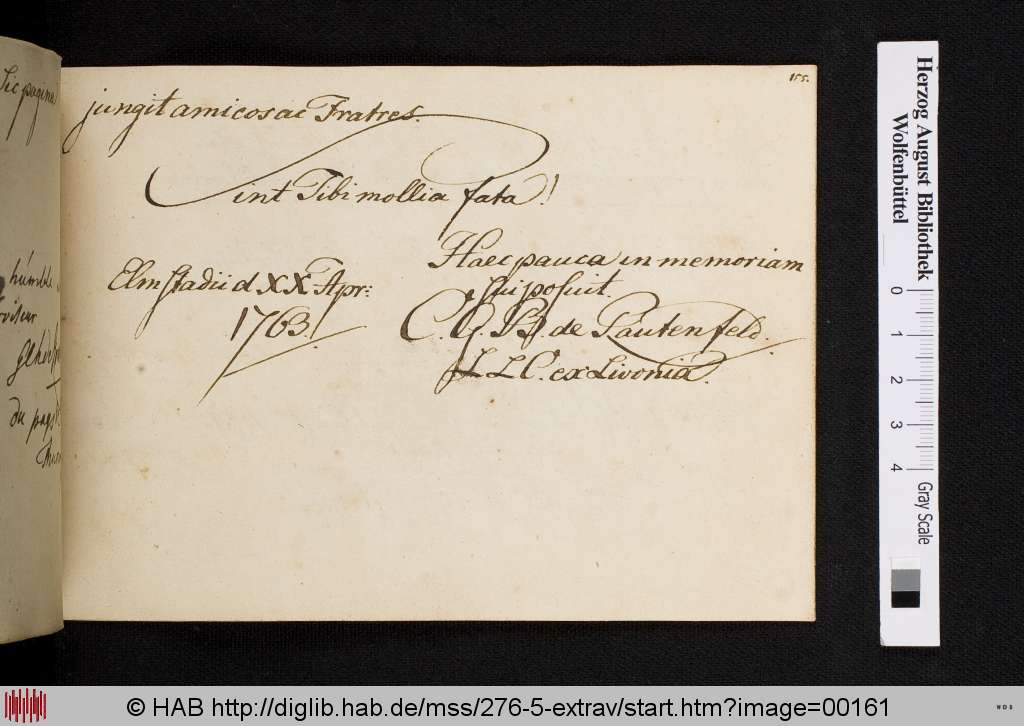 155.
Sic pagina
jungit amicos ac Fratres.
Sint Tibi mollia fata!
Haec pauca in memoriam
Sui posuit.
Elmstadii d XX Apr:
1763.
C. G. B. de Pautenfeld.
LLC. ex Livonia.
humble
du pays
Herzog August Bibliothek
Wolfenbüttel
0
1
2
3
4
Gray Scale
© HAB http://diglib.hab.de/mss/276-5-extrav/start.htm?image=00161
WDB